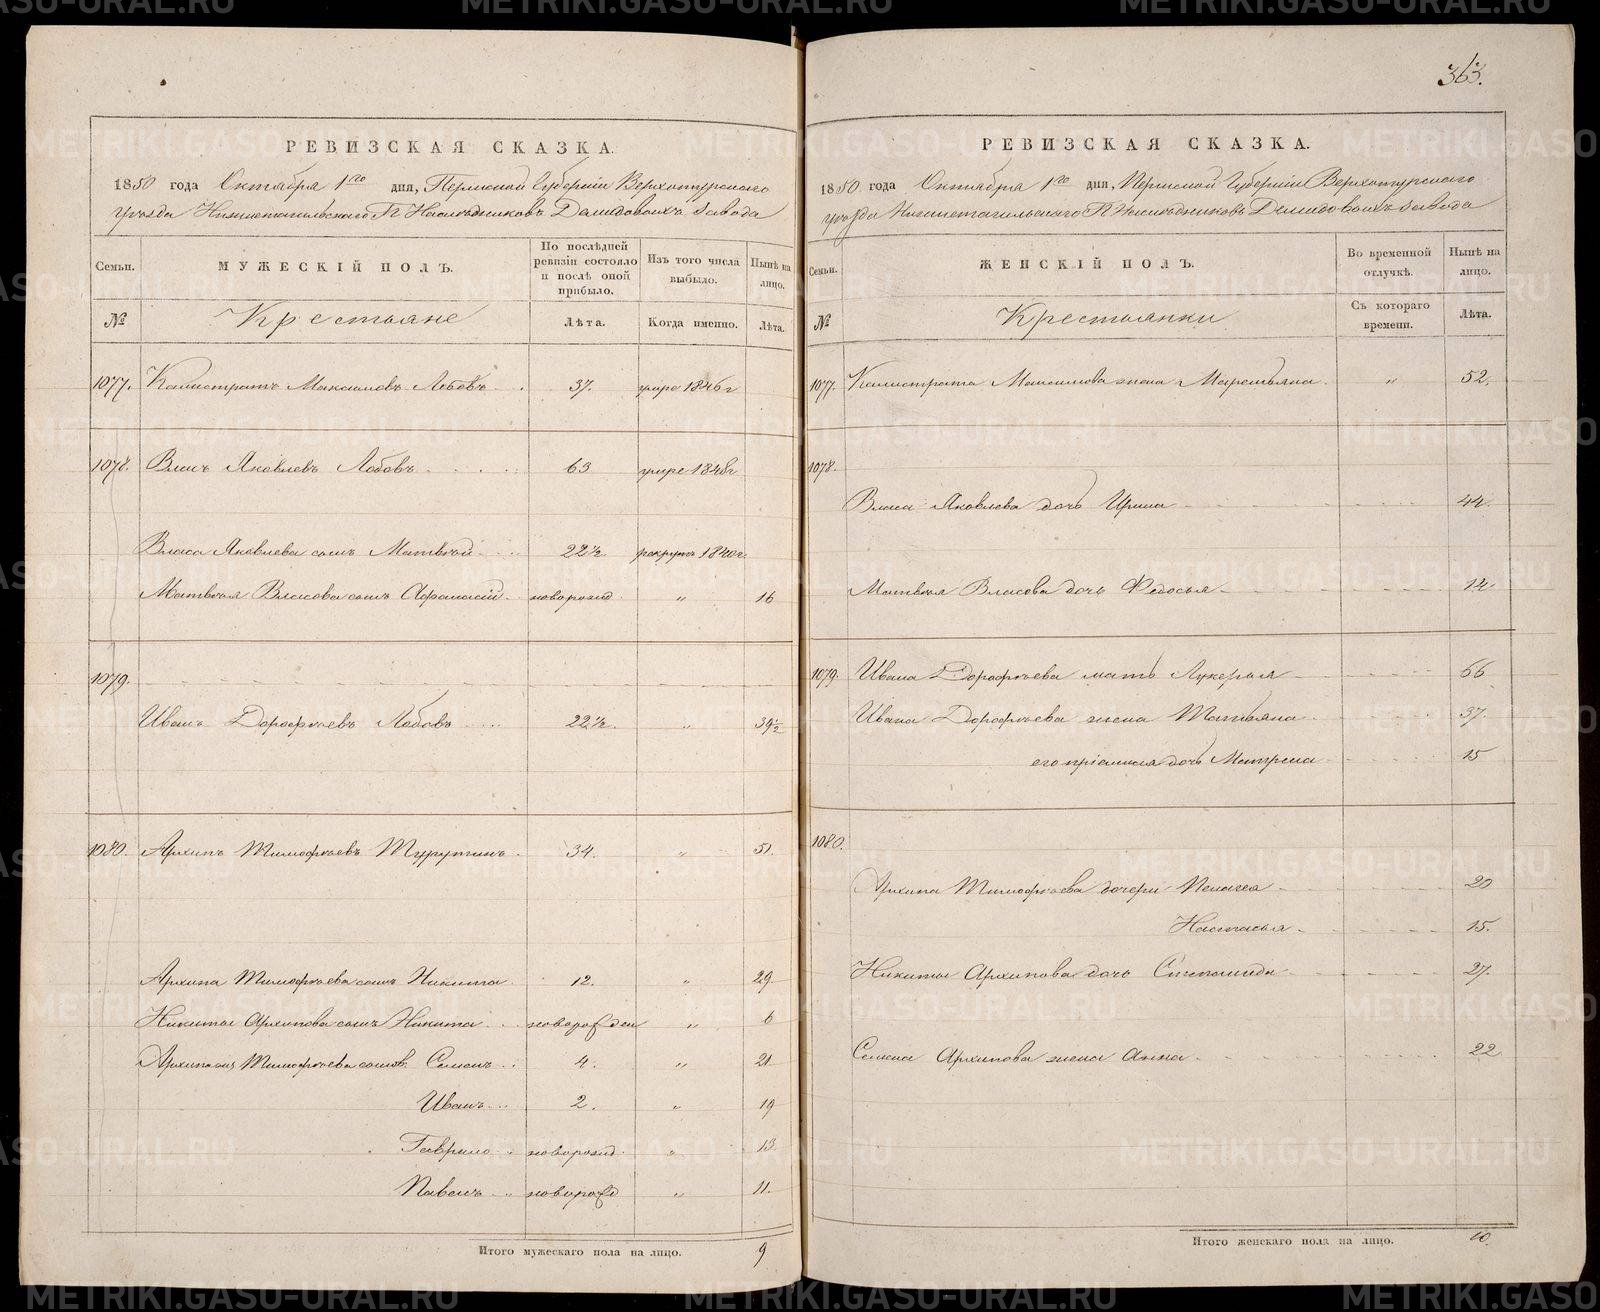 РЕВИЗСКАЯ СКАЗКА.
1850 года Октября 1го дня, Пермской Губерніи Верхотурскаго
уѣзда Нижнетагильскаго Г. Наслѣдниковъ Демидовыхъ завода
Семьи. МУЖЕСКІЙ ПОЛЪ. По послѣдней ревизіи состояло и послѣ оной прибыло. Изъ того числа выбыло. Нынѣ на лицо.
№ Крестьяне Лѣта. Когда именно. Лѣта.
1077. Калистратъ Максимовъ Лобовъ 37. умре 1846 г
1078. Власъ Яковлевъ Лобовъ 63 умре 1848 г
Власа Яковлева сынъ Матвѣй 22½ рекрутъ 1840 г.
Матвѣя Власова сынъ Афанасій новорожд „ 16
1079.
Иванъ Дорофѣевъ Лобовъ 22½ „ 39½
1080. Архипъ Тимофѣевъ 34. „ 51.
Архипа Тимофѣева сынъ Никита 12. „ 29
Никиты Архипова сынъ Никита новорожден „ 6
Тимофѣева сынов. Семенъ 4. „ 21
Иванъ 2. „ 19
Гаврило новорожд „ 13
Павелъ новорожд „ 11.
Итого мужескаго пола на лицо. 9
363.
РЕВИЗСКАЯ СКАЗКА.
1850 года Октября 1го дня, Пермской Губерніи Верхотурскаго
уѣзда Нижнетагильскаго Г. Наслѣдниковъ Демидовыхъ завода
Семьи. ЖЕНСКІЙ ПОЛЪ. Во временной отлучкѣ. Нынѣ на лицо.
№ Крестьянки Съ котораго времени. Лѣта.
1077. Калистрата Максимова жена Маремьяна „ 52.
1078.
Власа Яковлева дочь Ирина 44.
Матвѣя Власова дочь Федосья 14.
1079. Ивана Дорофѣева мать Лукерья 66
Ивана Дорофѣева жена Татьяна 37.
его пріемная дочь Матрена 15
1080.
Архипа Тимофѣева дочери Пелагея 20
Настасья 15.
Никиты Архипова дочь Степанида 27.
Семена Архипова жена Анна 22
Итого женскаго пола на лицо. 10.
METRIKI.GASO-URAL.RU